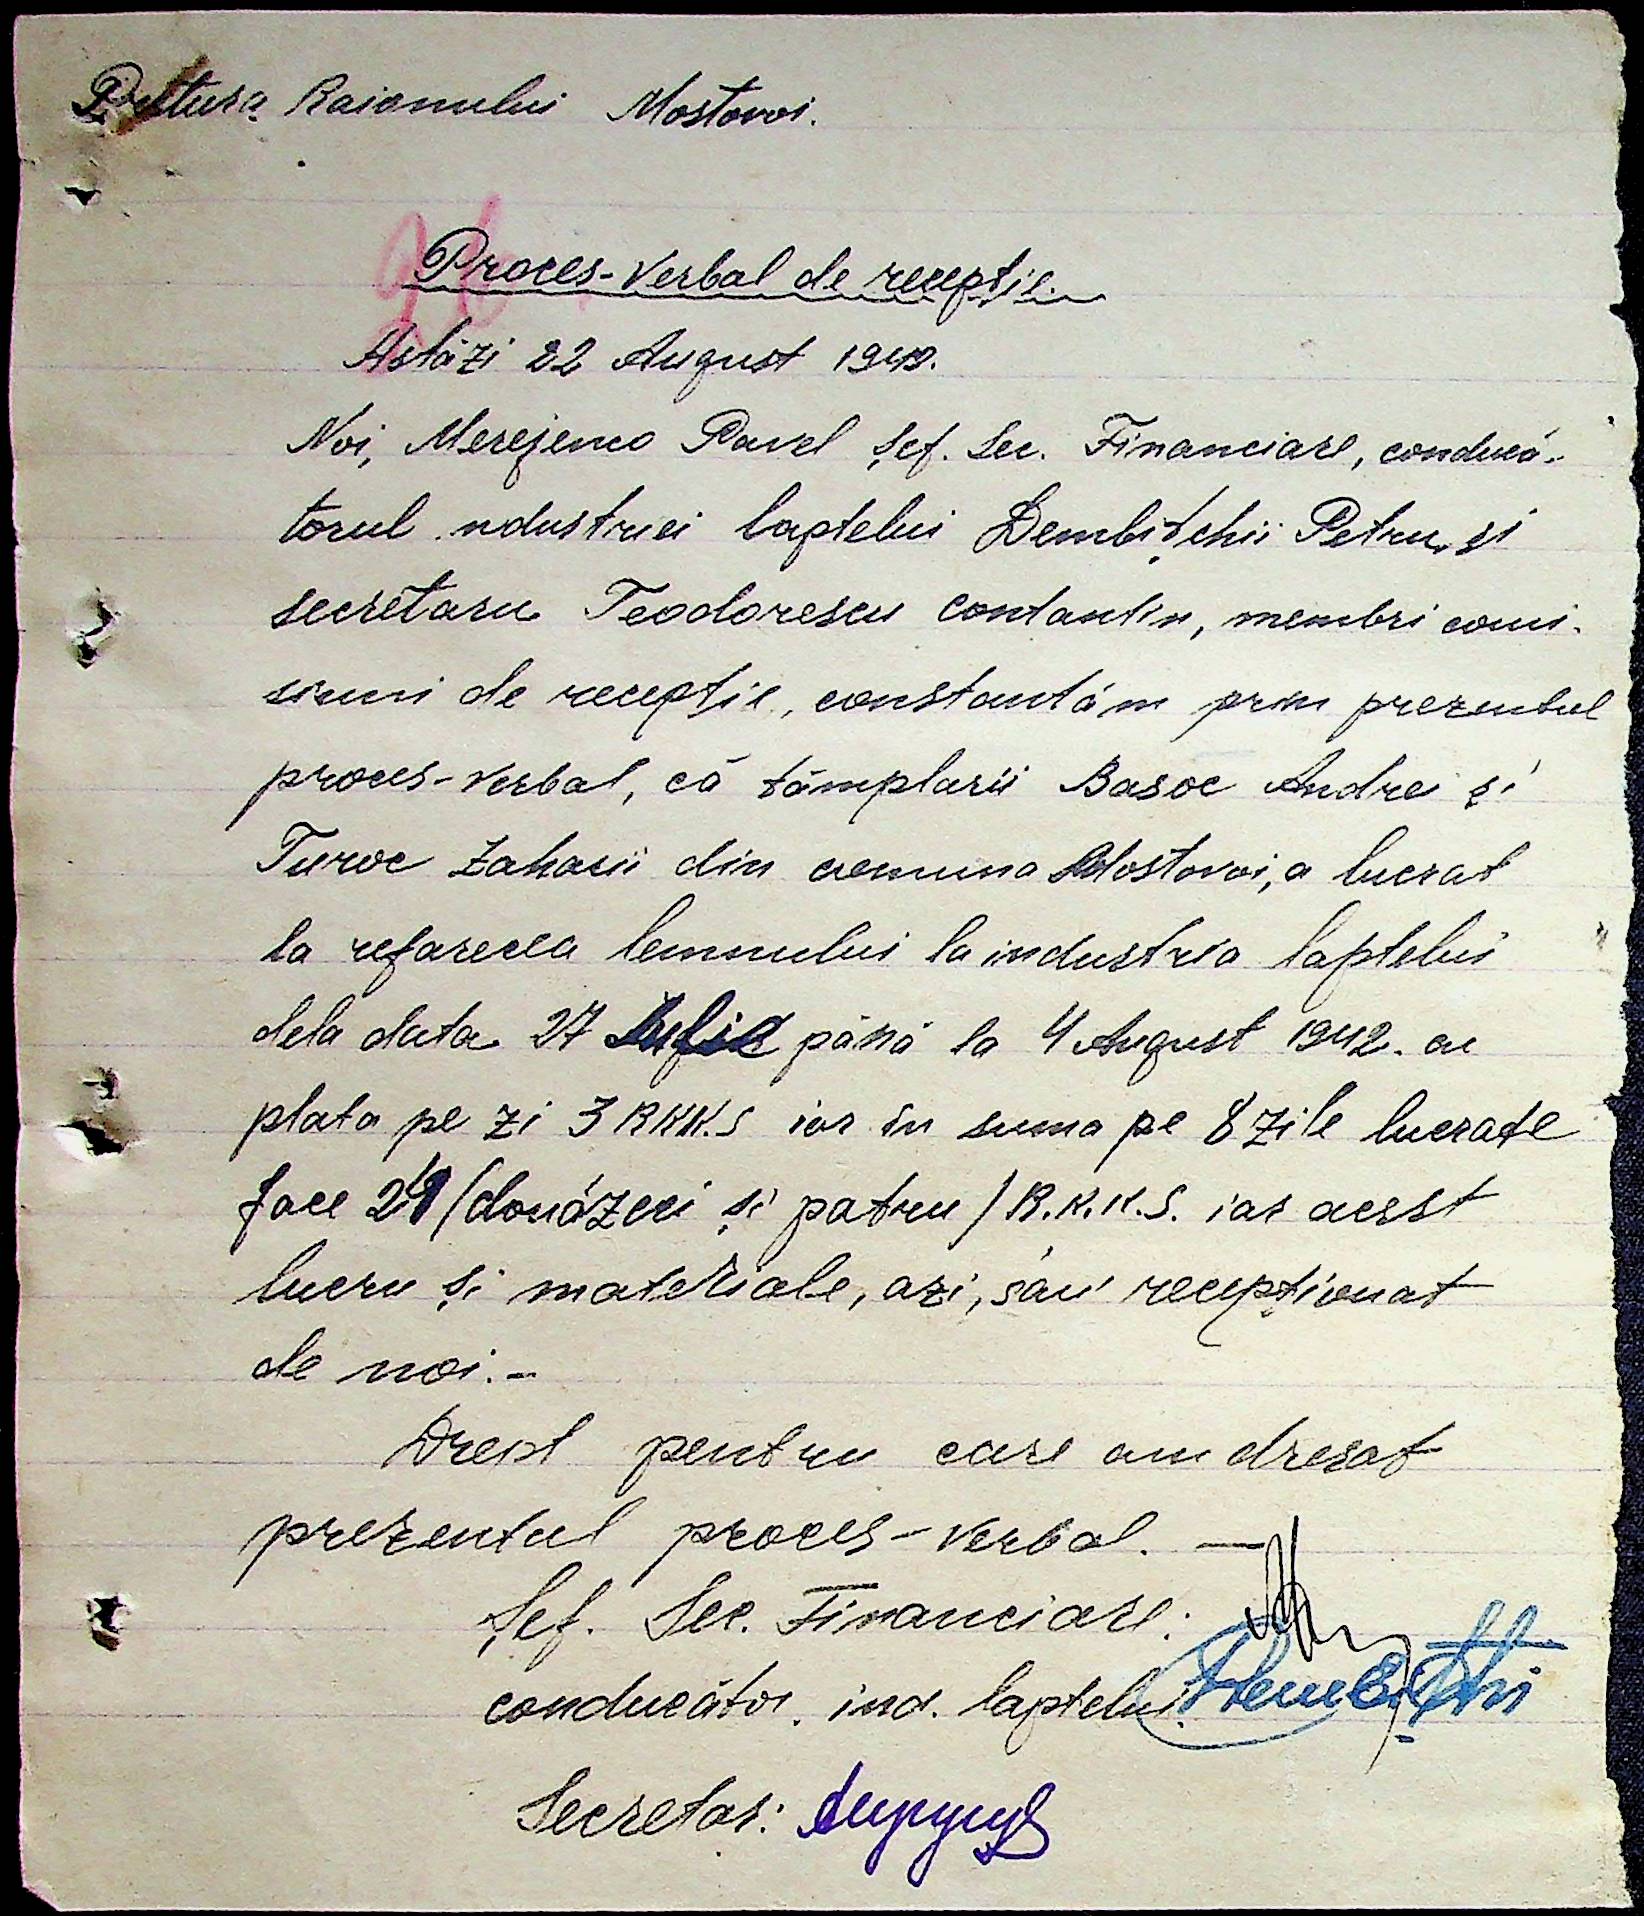 Pretura Raionului Mostovoi.
Proces-Verbal de recepție.
Astăzi 22 August 1942.
Noi, Merejenco Pavel Șef. Sec. Financiare, conducă-
torul ndustriei laptelui Dembițchii Petru, și
secretaru Teodorescu Contantin, membri comi-
siuni de recepție, constantăm prin prezentul
proces-verbal, că tâmplarii Basoc Andrei și
Turoc Zaharii din comuna Mostovoi, a lucrat
la refacerea lemnului la industria laptelui
dela data 27 Iulie până la 4 August 1942. cu
plata pe zi 3 R.K.K.S iar în suma pe 8 zile lucrate
face 24 (douăzeci și patru) R.K.K.S. iar acest
lucru și materiale, azi, sau recepționat
de noi.-
Drept pentru care am dresat
prezentul proces-verbal. —
Șef. Sec. Financiare:
conducător. ind. laptelui
Secretar: